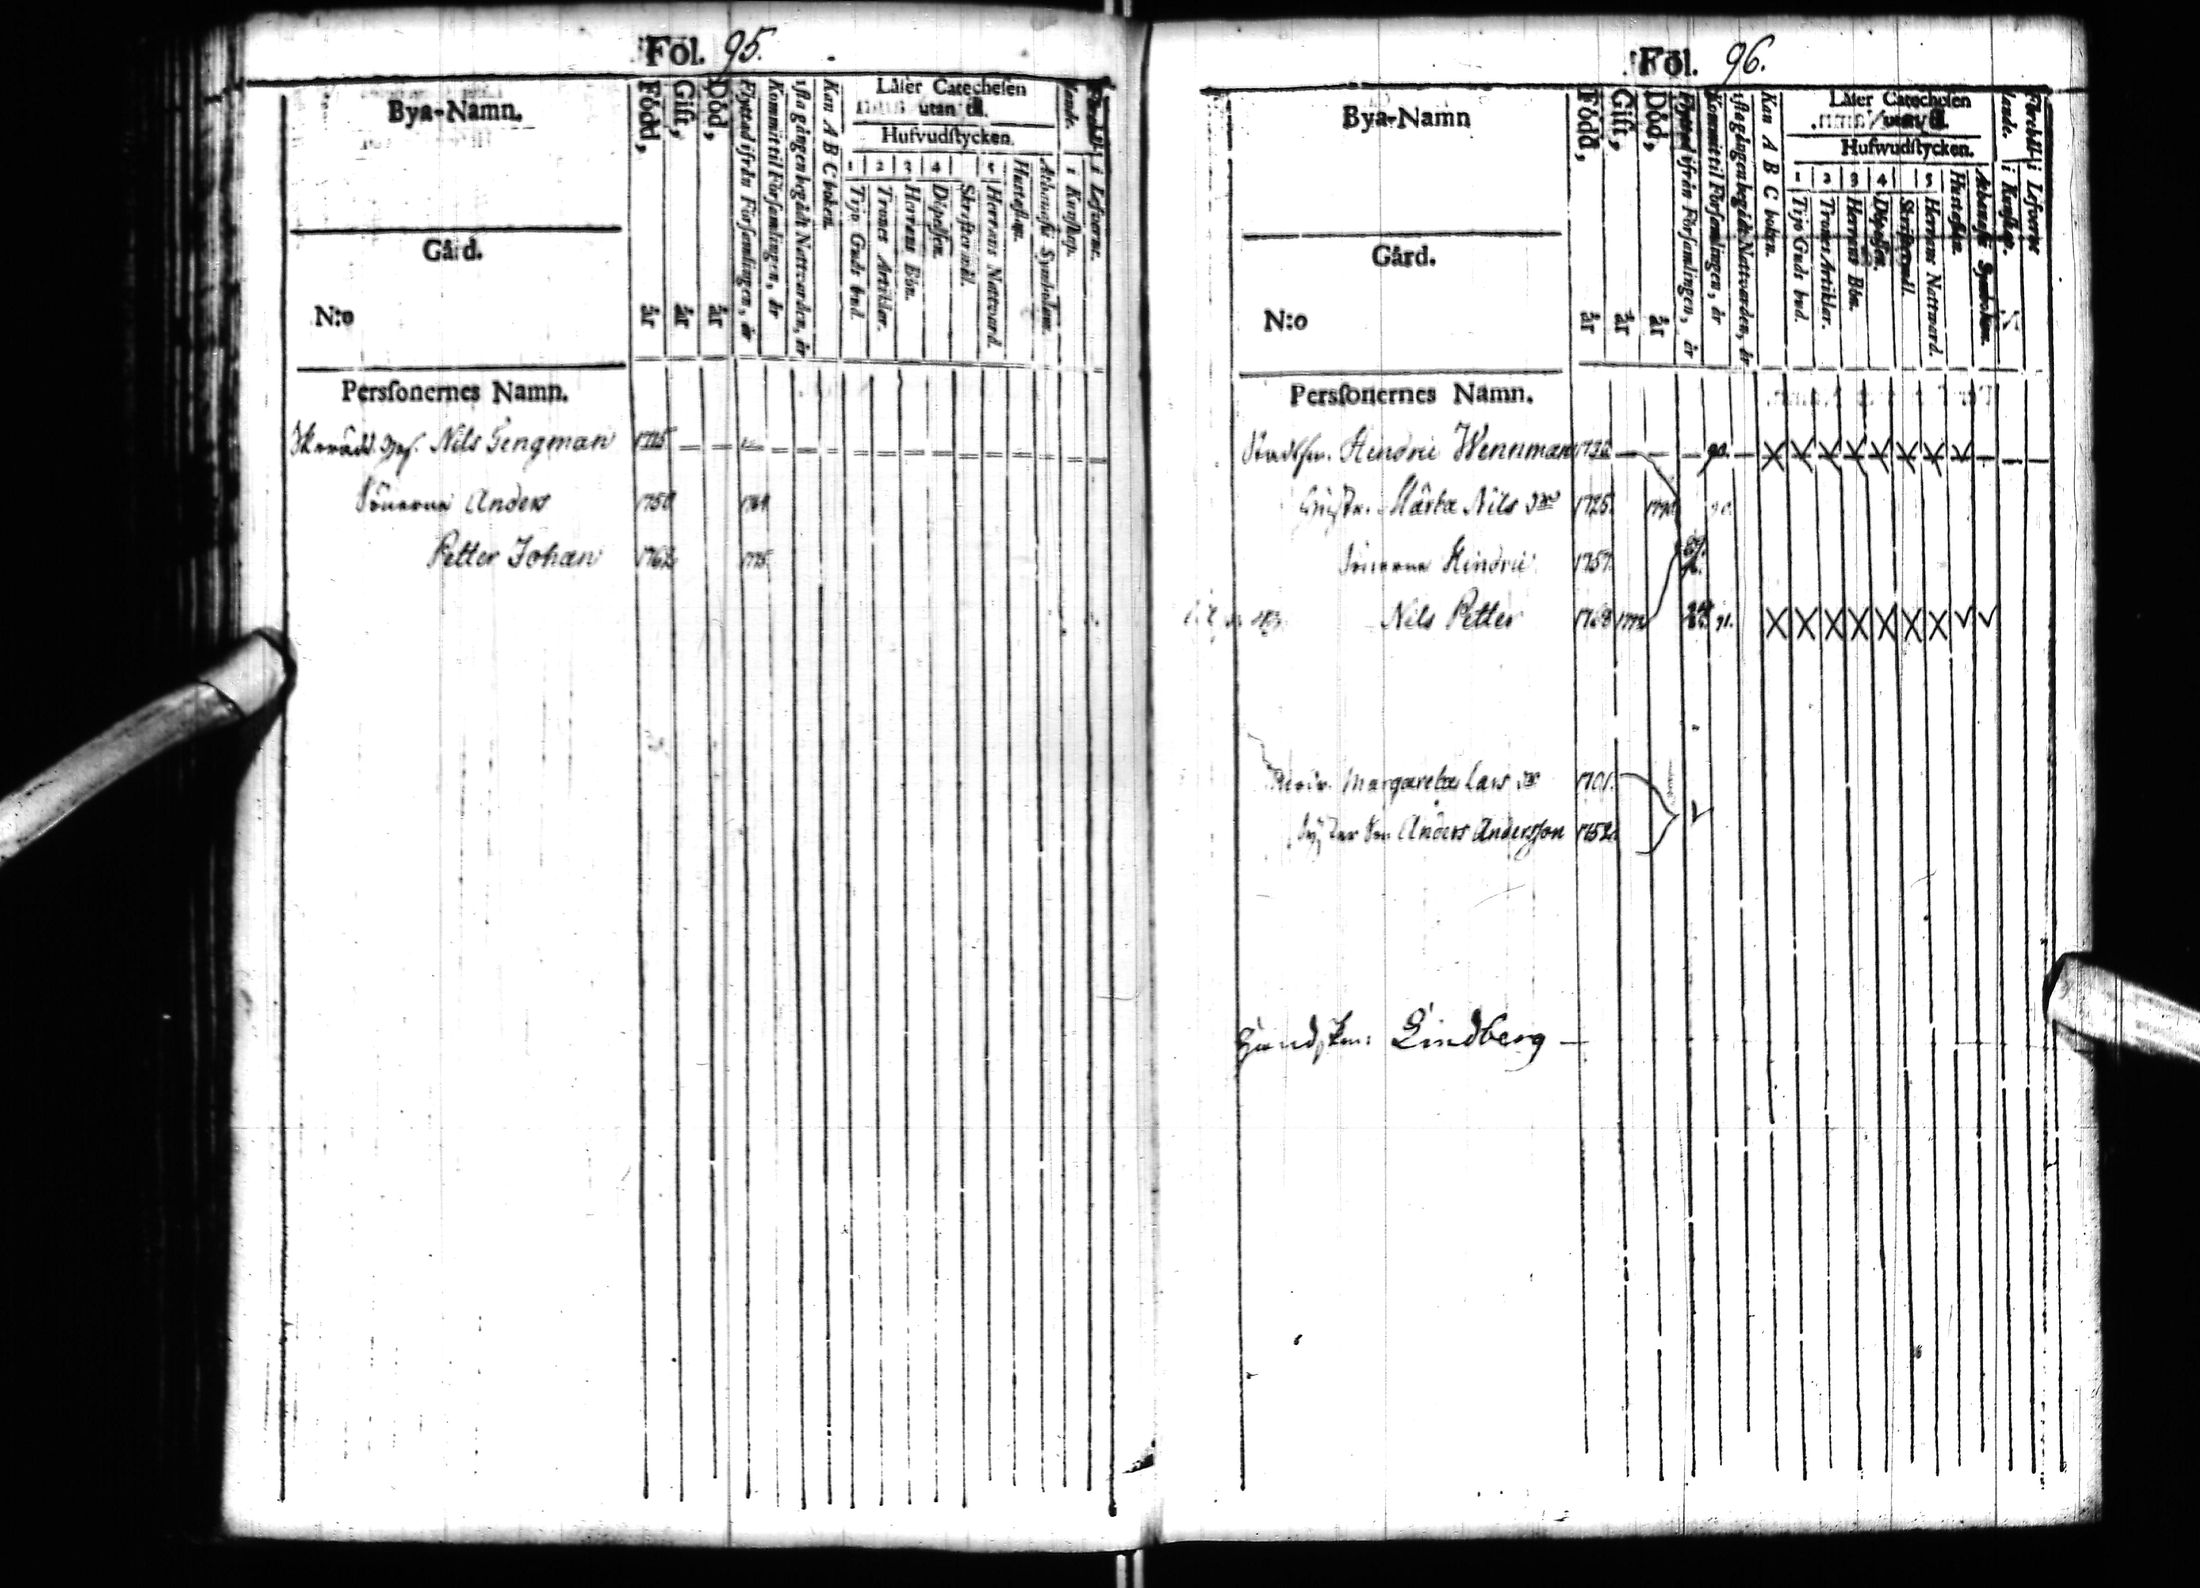 Fol. 95.
Bya-Namn.
Gård.
N:o
Född, år
Gift, år
Död, år
Flyttad ifrån Församlingen, år
Kommit til Församlingen, år
sista gången begådt Nattvarden, år
Kan A B C boken.
Läser Catechesen
utan til.
Hufvudstycken.
1 Tijo Guds bud.
2 Trones Artiklar.
3 Herrans Bön.
4 Döpelsen.
Skriftermål.
5 Herrans Nattvard.
Hustaflan.
Athanasii Symbolum.
Förhållande.
i Kunskap.
i Lefverne.
Personernes Namn.
Nils Tengman 1725
Sönerna Anders 1750 1769
Petter Johan 1762 1775
Fol. 96.
Bya-Namn
Gård.
N:o
Född, år
Gift, år
Död, år
Flyttad ifrån Församlingen, år
Kommit til Församlingen, år
sista gången begådt Nattvarden, år
Kan A B C boken.
Läser Catechesen
utan til.
Hufwudstycken.
1 Tijo Guds bud.
2 Trones Artiklar.
3 Herrans Bön.
4 Döpelsen.
Skriftermål.
5 Herrans Nattward.
Hustaflan.
Athanasii Symbolum.
Förhållande.
i Kunskap.
i Lefverne
Personernes Namn.
Hendric Wennman 90.
Märta Nils 1725.
Sönerna Hindric 1757.
Nils Petter 91.
Margareta Lars 1701.
Anders Andersson 1752.
Lindberg